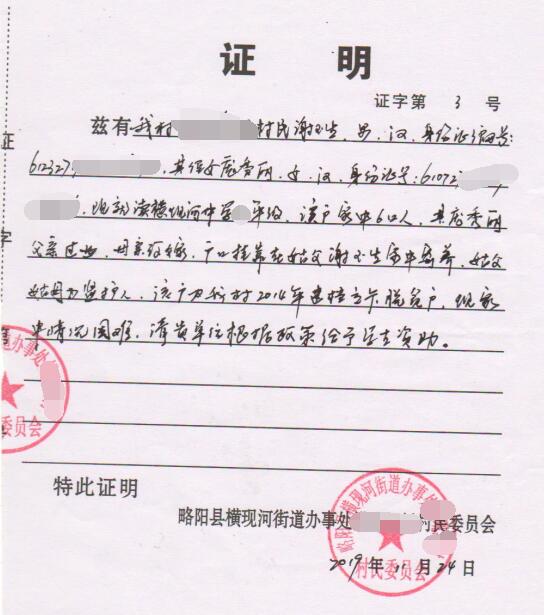 证 明
证字第 3 号
兹有我村村民谢玉生,男,汉,身份证编号:
612327,其侄女庞秀丽,女,汉,身份证号:61072
,现就读横现河中学年级,该户家中6口人,其庞秀丽
父亲过世,母亲改嫁,户口挂靠在姑父谢玉生家中寄养,姑父
姑母为监护人,该户为我村2014年建档立卡脱贫户,现家
中情况困难,请贵单位根据政策给予学生资助。
特此证明
略阳县横现河街道办事处村民委员会
2019年11月24日
略阳县横现河街道办事处
村民委员会
证
字
道办事处
委员会